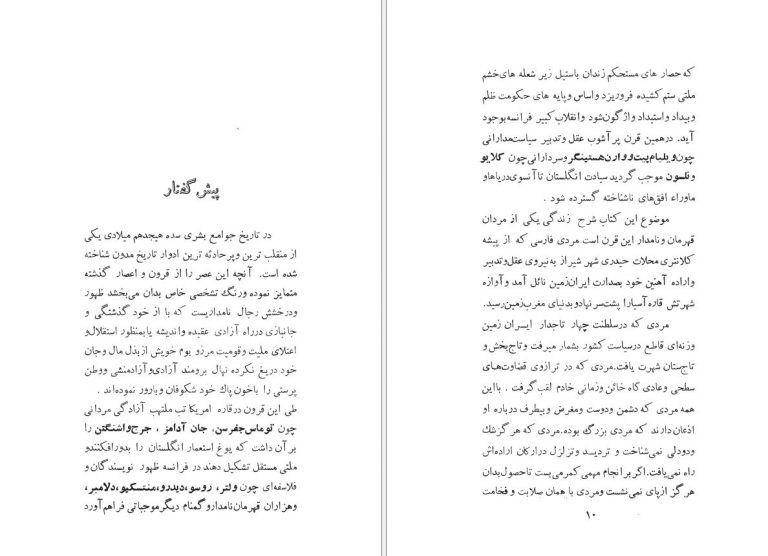 پیش گفتار
در تاریخ جوامع بشری سده هیجدهم میلادی یکی
از منقلب ترین و پرحادثه ترین ادوار تاریخ مدون شناخته
شده است . آنچه این عصر را از قرون و اعصار گذشته
متمایز نموده و رنگ تشخصی خاص بدان می‌بخشد ظهور
و درخشش رجال نامداریست که با از خود گذشتگی و
جانبازی در راه آزادی عقیده و اندیشه یا بمنظور استقلال و
اعتلای ملیت و قومیت مرز و بوم خویش از بذل مال و جان
خود دریغ نکرده نهال برومند آزادی و آزادمنشی و وطن
پرستی را باخون پاك خود شکوفان و بارور نموده‌اند .
طی این قرون در قاره امریکا تب ملتهب آزادگی مردانی
چون توماس جفرسن، جان آدامز ، جرج واشنگتن را
بر آن داشت که یوغ استعمار انگلستان را بدور افکنند و
ملتی مستقل تشکیل دهند در فرانسه ظهور نویسندگان و
فلاسفه‌ای چون ولتر، روسو، دیدرو، منتسکیو، دلامبر،
و هزاران قهرمان نامدار و گمنام دیگر موجباتی فراهم آورد
که حصار های مستحکم زندان باستیل زیر شعله های خشم
ملتی ستم کشیده فروریزد و اساس و پایه های حکومت ظلم
و بیداد و استبداد واژگون شود و انقلاب کبیر فرانسه بوجود
آید. در همین قرن پر آشوب عقل و تدبیر سیاستمدارانی
چون ویلیام پیت و وارن هستینگز و سردارانی چون کلایو
و نلسون موجب گردید سیادت انگلستان تا آنسوی دریاها و
ماوراء افق‌های ناشناخته گسترده شود .
موضوع این کتاب شرح زندگی یکی از مردان
قهرمان و نامدار این قرن است مردی فارسی که از پیشه
کلانتری محلات حیدری شهر شیراز به نیروی عقل و تدبیر
و اراده آهنین خود بصدارت ایران‌زمین نائل آمد و آوازه
شهرتش قاره آسیا را پشت سر نهاد و بدنیای مغرب‌زمین رسید.
مردی که در سلطنت چهار تاجدار ایران زمین
وزنه‌ای قاطع در سیاست کشور بشمار میرفت و تاج‌بخش و
تاج‌ستان شهرت یافت. مردی که در ترازوی قضاوت‌های
سطحی و عادی گاه خائن و زمانی خادم لقب گرفت . با این
همه مردی که دشمن و دوست و مغرض و بیطرف درباره او
اذعان دارند که مردی بزرگ بوده. مردی که هرگز شك
و دودلی نمی‌شناخت و تردید و تزلزل در ارکان اراده‌اش
راه نمی‌یافت. اگر بر انجام مهمی کمر می‌بست تا حصول بدان
هرگز از پای نمی‌نشست و مردی با همان صلابت و فخامت
۱۰